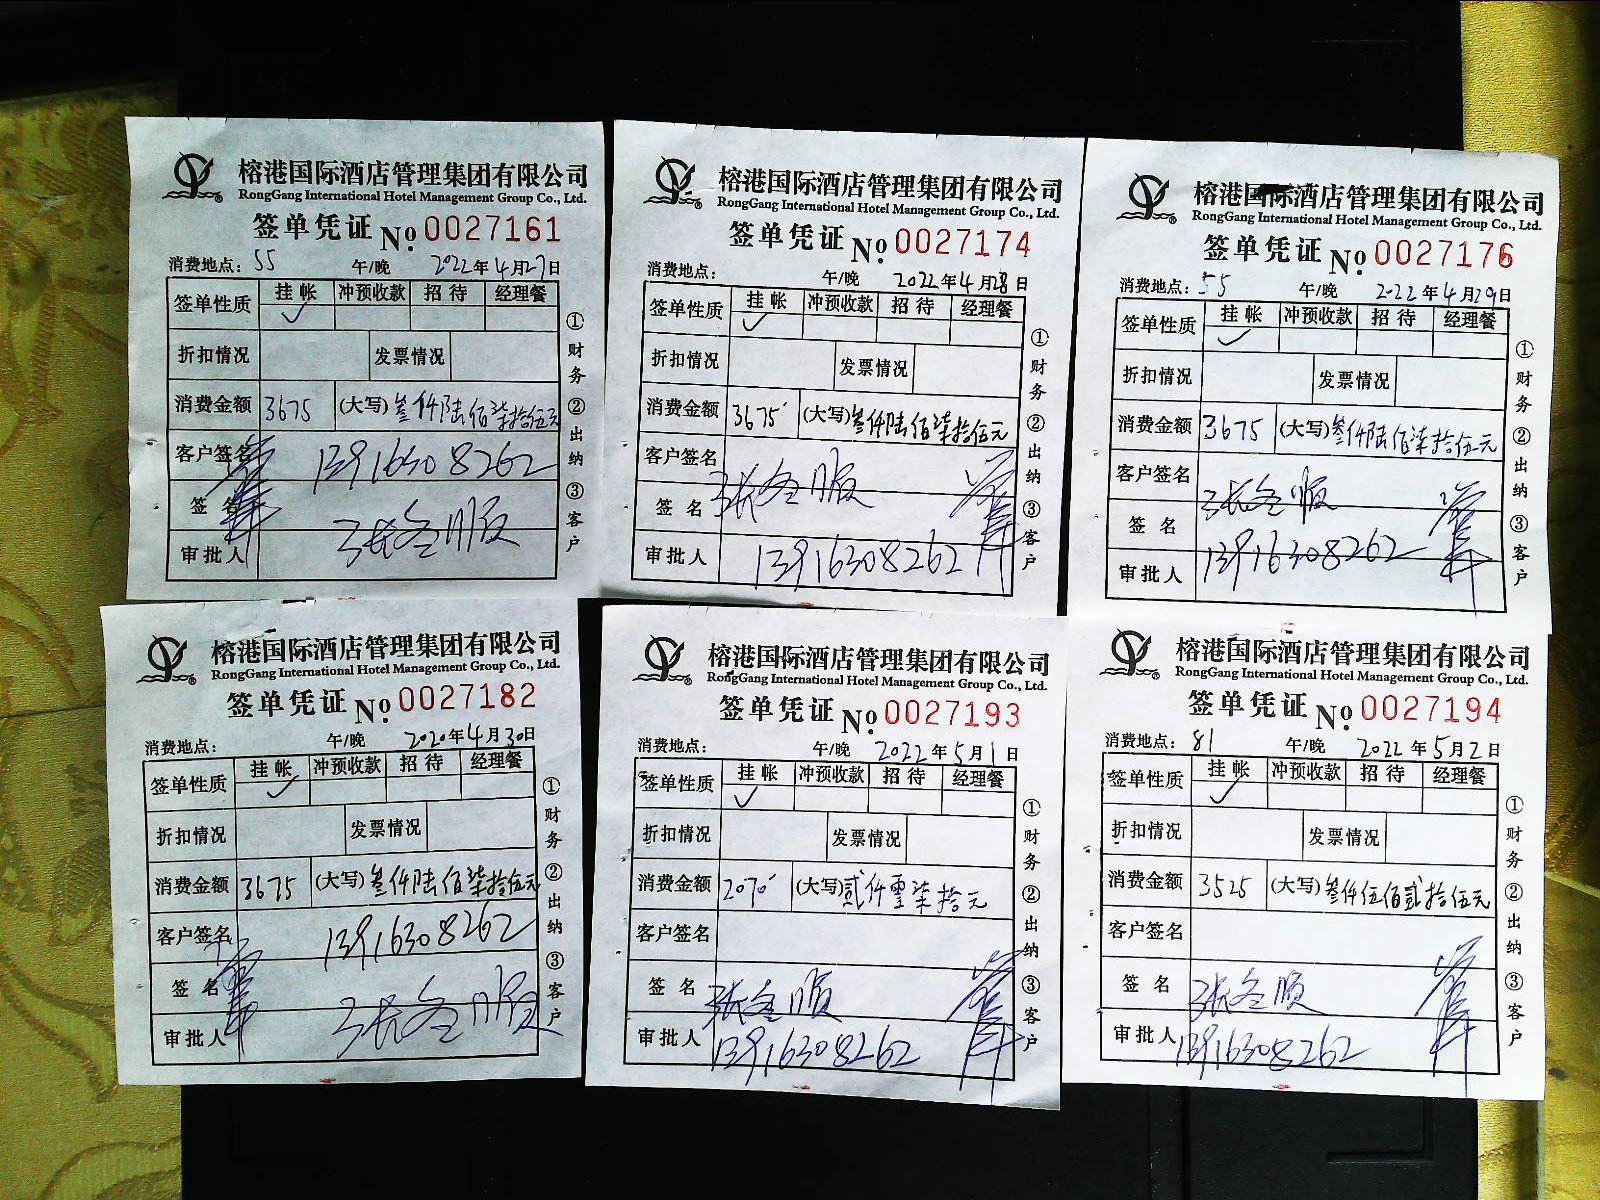 榕港国际酒店管理集团有限公司
RongGang International Hotel Management Group Co., Ltd.
签单凭证 No. 0027161
消费地点: 55 午/晚 2022年4月27日
签单性质 挂帐 冲预收款 招待 经理餐
✓
折扣情况 发票情况
消费金额 3675 (大写) 叁仟陆佰柒拾伍元
客户签名 13916308262
签名 张冬顺
审批人
①财务 ②出纳 ③客户
榕港国际酒店管理集团有限公司
RongGang International Hotel Management Group Co., Ltd.
签单凭证 No. 0027174
消费地点: 午/晚 2022年4月28日
签单性质 挂帐 冲预收款 招待 经理餐
✓
折扣情况 发票情况
消费金额 3675 (大写) 叁仟陆佰柒拾伍元
客户签名
签名 张冬顺
审批人 13916308262
①财务 ②出纳 ③客户
榕港国际酒店管理集团有限公司
RongGang International Hotel Management Group Co., Ltd.
签单凭证 No. 0027176
消费地点: 55 午/晚 2022年4月29日
签单性质 挂帐 冲预收款 招待 经理餐
✓
折扣情况 发票情况
消费金额 3675 (大写) 叁仟陆佰柒拾伍元
客户签名
签名 张冬顺
审批人 13916308262
①财务 ②出纳 ③客户
榕港国际酒店管理集团有限公司
RongGang International Hotel Management Group Co., Ltd.
签单凭证 No. 0027182
消费地点: 午/晚 2020年4月30日
签单性质 挂帐 冲预收款 招待 经理餐
✓
折扣情况 发票情况
消费金额 3675 (大写) 叁仟陆佰柒拾伍元
客户签名 13916308262
签名 张冬顺
审批人
①财务 ②出纳 ③客户
榕港国际酒店管理集团有限公司
RongGang International Hotel Management Group Co., Ltd.
签单凭证 No. 0027193
消费地点: 午/晚 2022年5月1日
签单性质 挂帐 冲预收款 招待 经理餐
✓
折扣情况 发票情况
消费金额 2070 (大写) 贰仟零柒拾元
客户签名
签名 张冬顺
审批人 13916308262
①财务 ②出纳 ③客户
榕港国际酒店管理集团有限公司
RongGang International Hotel Management Group Co., Ltd.
签单凭证 No. 0027194
消费地点: 81 午/晚 2022年5月2日
签单性质 挂帐 冲预收款 招待 经理餐
✓
折扣情况 发票情况
消费金额 3525 (大写) 叁仟伍佰贰拾伍元
客户签名
签名 张冬顺
审批人 13916308262
①财务 ②出纳 ③客户